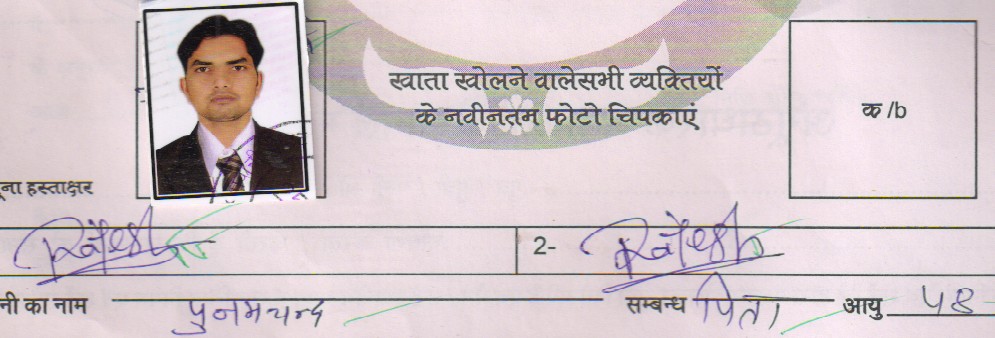 खाता खोलने वाले सभी व्यक्तियों
के नवीनतम फोटो चिपकाएं
क /b
ना हस्ताक्षर
Rajesh 2- Rajesh
नी का नाम पुनमचन्द सम्बन्ध पिता आयु 58